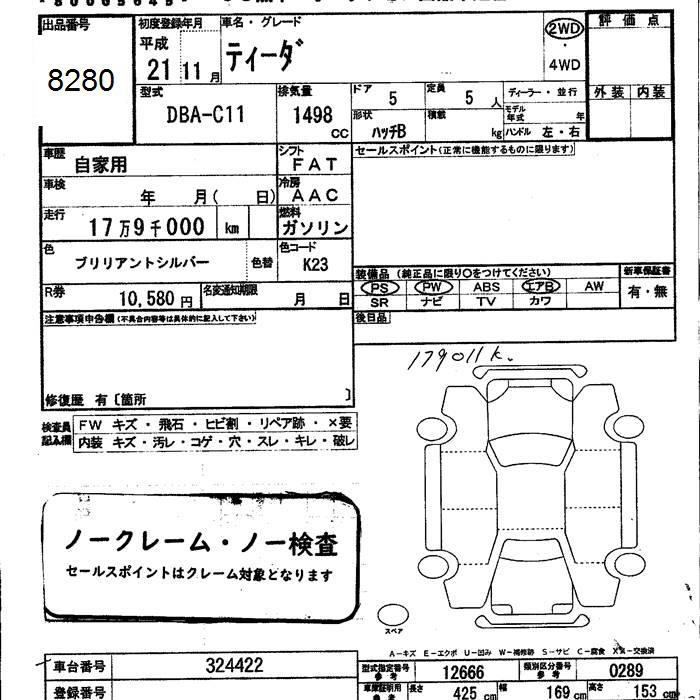 出品番号
8280
初度登録年月
平成
21 11 月
車名・グレード
ティーダ
2WD
・
4WD
評価点
外装 内装
型式
DBA-C11
排気量
1498
CC
ドア 5
定員 5 人
形状 ハッチB
積載 kg
ディーラー・並行
モデル年式 年
ハンドル 左・右
車歴 自家用
シフト FAT
セールスポイント(正常に機能するものに限ります)
車検 年 月( 日)
冷房 AAC
走行 17万9千000 km
燃料 ガソリン
色 ブリリアントシルバー 色替
色コード K23
R券 10,580 円
名変通知期限 月 日
装備品(純正品に限り○をつけてください)
PS PW ABS エアB AW
SR ナビ TV カワ
新車保証書
有・無
注意事項申告欄(不具合内容等は具体的に記入して下さい)
後日品
修復歴 有〔箇所 〕
179011k.
検査員記入欄
FW キズ・飛石・ヒビ割・リペア跡・×要
内装 キズ・汚レ・コゲ・穴・スレ・キレ・破レ
ノークレーム・ノー検査
セールスポイントはクレーム対象となります
スペア
A-キズ E-エクボ U-凹み W-補修跡 S-サビ C-腐食 X-交換済
車台番号 324422
型式指定番号 参考 12666
類別区分番号 参考 0289
登録番号
車庫証明用 参考
長さ 425 cm
幅 169 cm
高さ 153 cm